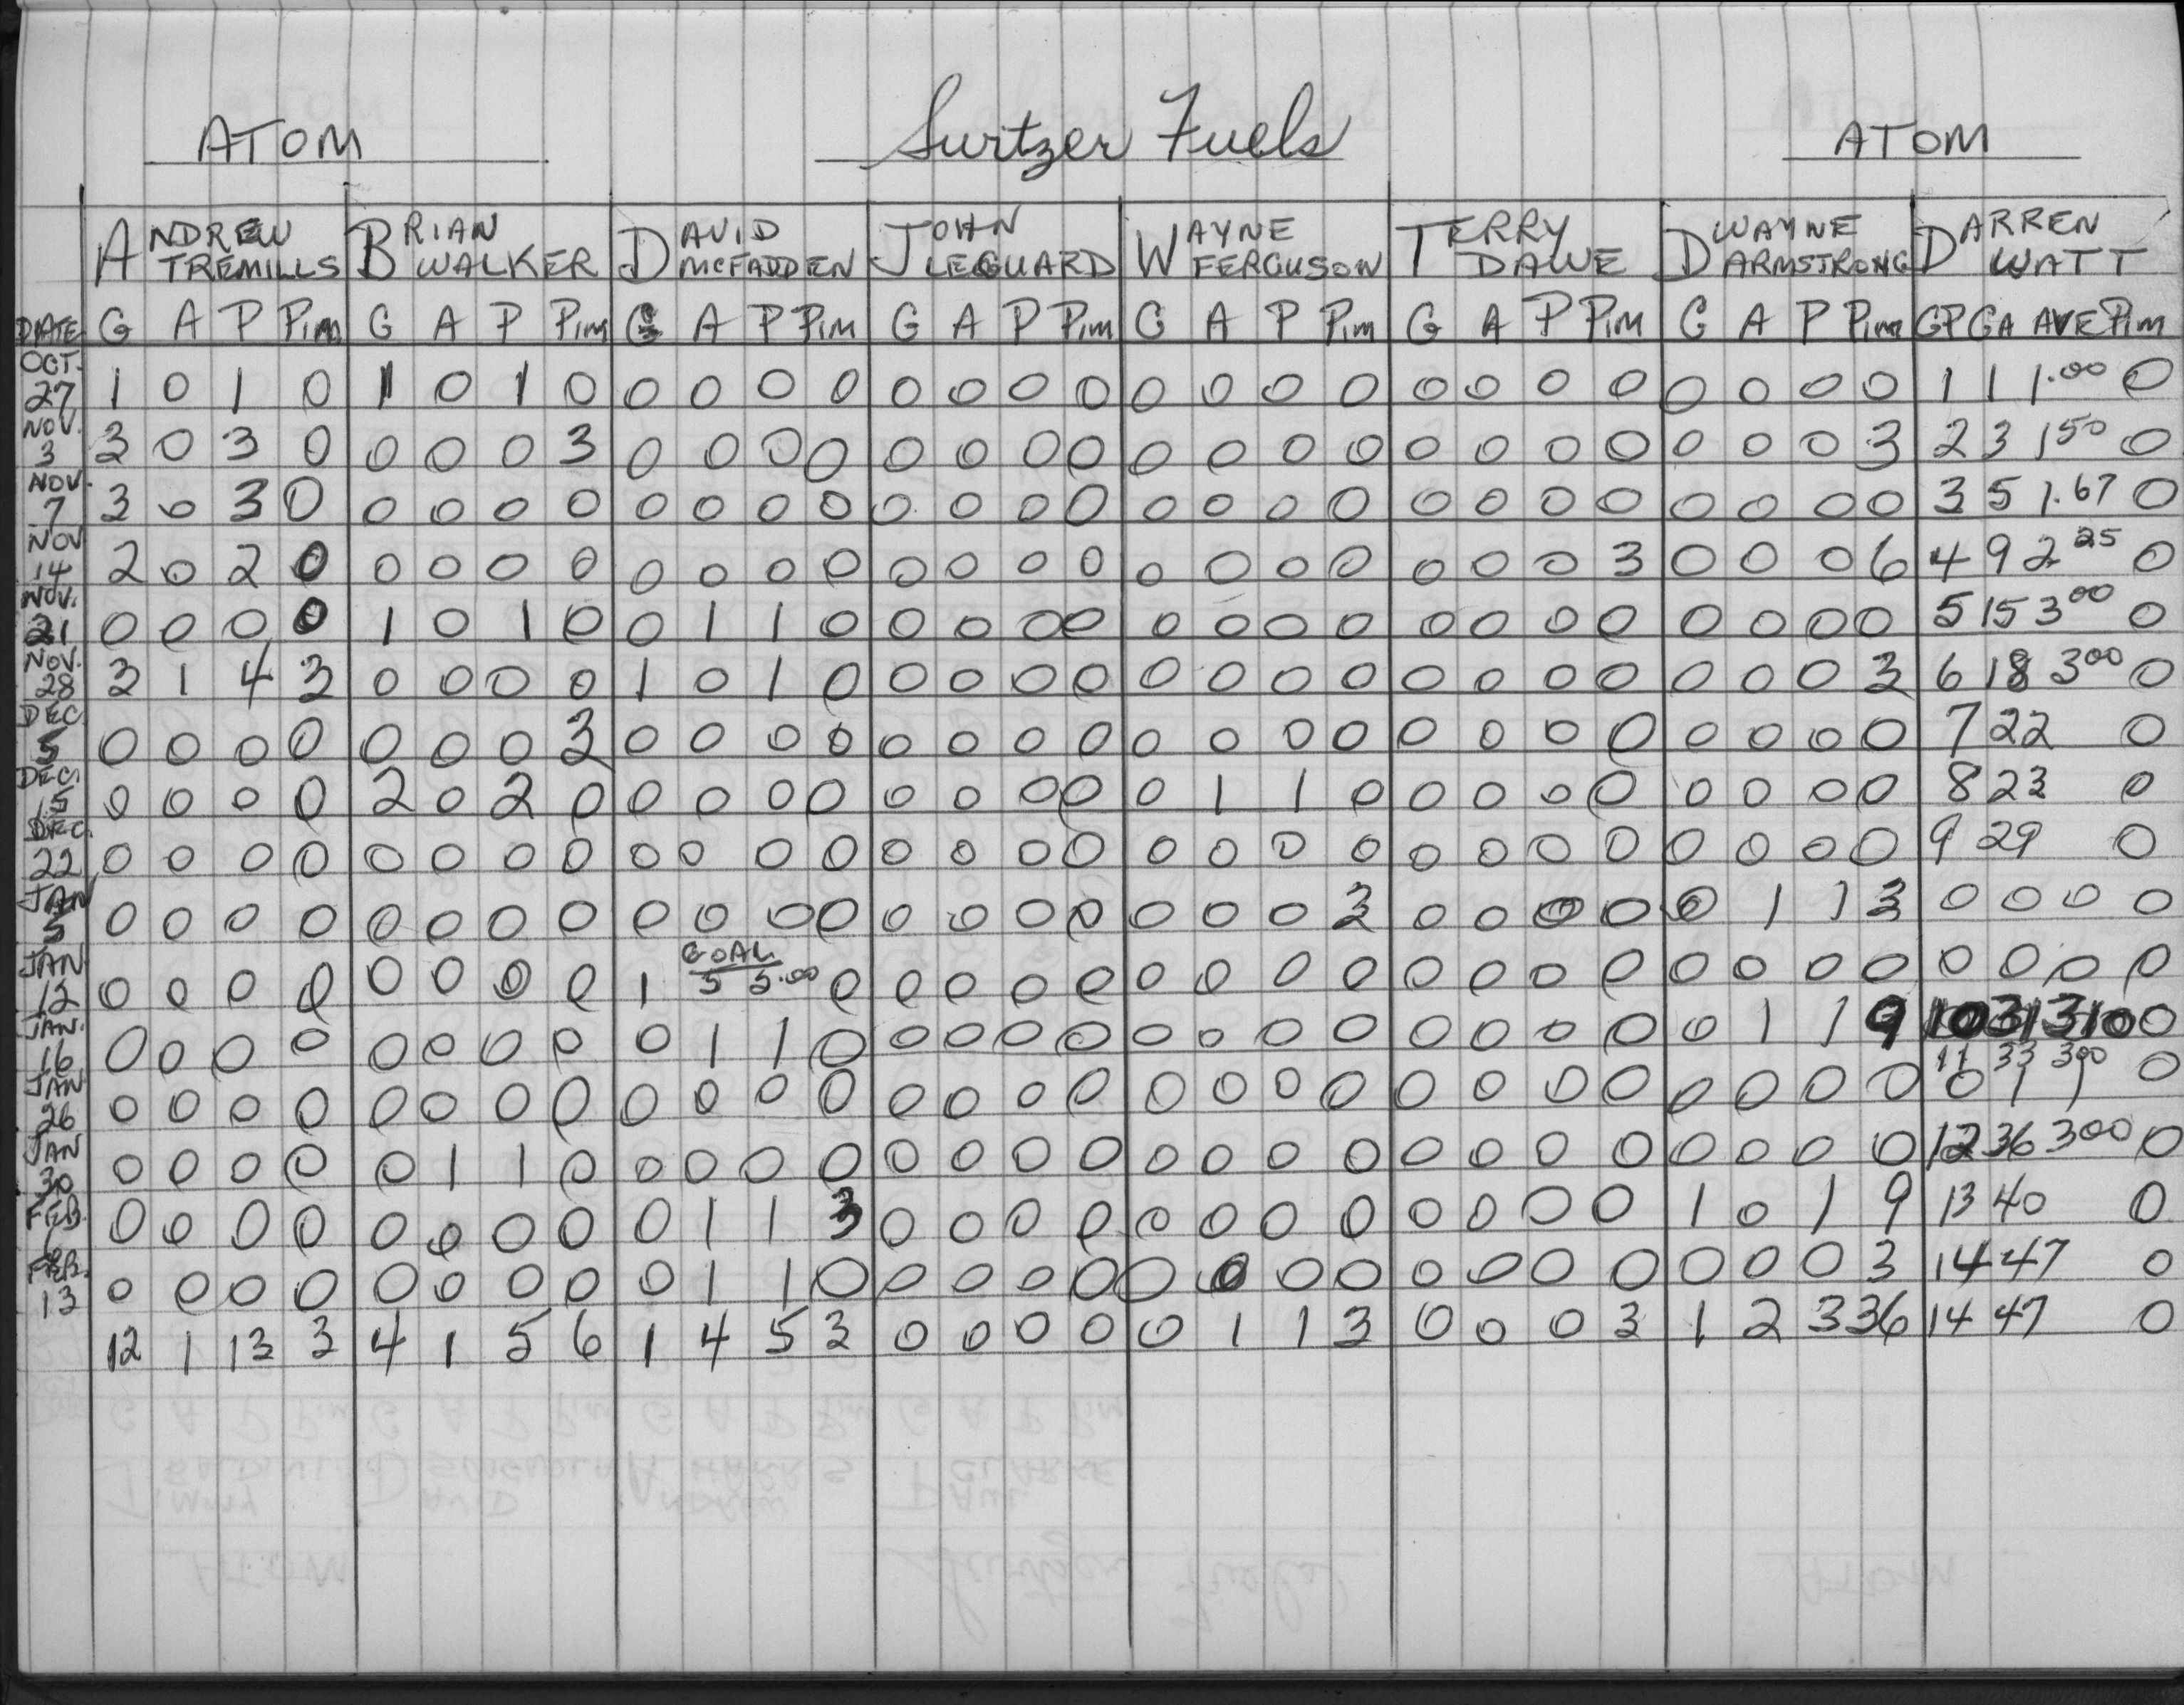 ATOM Surtzer Fuels ATOM
ANDREW TREMILLS BRIAN WALKER DAVID McFADDEN JOHN LEGUARD WAYNE FERGUSON TERRY DAWE DWAYNE ARMSTRONG DARREN WATT
DATE G A P Pim G A P Pim G A P Pim G A P Pim G A P Pim G A P Pim G A P Pim GP GA AVE Pim
OCT. 27 1 0 1 0 1 0 1 0 0 0 0 0 0 0 0 0 0 0 0 0 0 0 0 0 0 0 0 0 1 1 1.00 0
NOV. 3 3 0 3 0 0 0 0 3 0 0 0 0 0 0 0 0 0 0 0 0 0 0 0 0 0 0 0 3 2 3 1 50 0
NOV. 7 3 0 3 0 0 0 0 0 0 0 0 0 0 0 0 0 0 0 0 0 0 0 0 0 0 0 0 0 3 5 1.67 0
NOV 14 2 0 2 0 0 0 0 0 0 0 0 0 0 0 0 0 0 0 0 0 0 0 0 3 0 0 0 6 4 9 2 25 0
NOV. 21 0 0 0 0 1 0 1 0 0 1 1 0 0 0 0 0 0 0 0 0 0 0 0 0 0 0 0 0 5 15 3 00 0
NOV. 28 3 1 4 3 0 0 0 0 1 0 1 0 0 0 0 0 0 0 0 0 0 0 0 0 0 0 0 3 6 18 3 00 0
DEC. 5 0 0 0 0 0 0 0 3 0 0 0 0 0 0 0 0 0 0 0 0 0 0 0 0 0 0 0 0 7 22 0
DEC. 15 0 0 0 0 2 0 2 0 0 0 0 0 0 0 0 0 0 1 1 0 0 0 0 0 0 0 0 0 8 23 0
DEC. 22 0 0 0 0 0 0 0 0 0 0 0 0 0 0 0 0 0 0 0 0 0 0 0 0 0 0 0 0 9 29 0
JAN 5 0 0 0 0 0 0 0 0 0 0 0 0 0 0 0 0 0 0 0 3 0 0 0 0 0 1 1 3 0 0 0 0
JAN 12 0 0 0 0 0 0 0 0 1 GOAL 5 5.00 0 0 0 0 0 0 0 0 0 0 0 0 0 0 0 0 0 0 0 0 0
JAN. 16 0 0 0 0 0 0 0 0 0 1 1 0 0 0 0 0 0 0 0 0 0 0 0 0 0 1 1 9 10 31 3 10 0
11 33 3 00
JAN 26 0 0 0 0 0 0 0 0 0 0 0 0 0 0 0 0 0 0 0 0 0 0 0 0 0 0 0 0 0 1 1 0
JAN 30 0 0 0 0 0 1 1 0 0 0 0 0 0 0 0 0 0 0 0 0 0 0 0 0 0 0 0 0 12 36 3 00 0
FEB. 0 0 0 0 0 0 0 0 0 1 1 3 0 0 0 0 0 0 0 0 0 0 0 0 1 0 1 9 13 40 0
FEB. 13 0 0 0 0 0 0 0 0 0 1 1 0 0 0 0 0 0 0 0 0 0 0 0 0 0 0 0 3 14 47 0
12 1 13 3 4 1 5 6 1 4 5 3 0 0 0 0 0 1 1 3 0 0 0 3 1 2 3 36 14 47 0